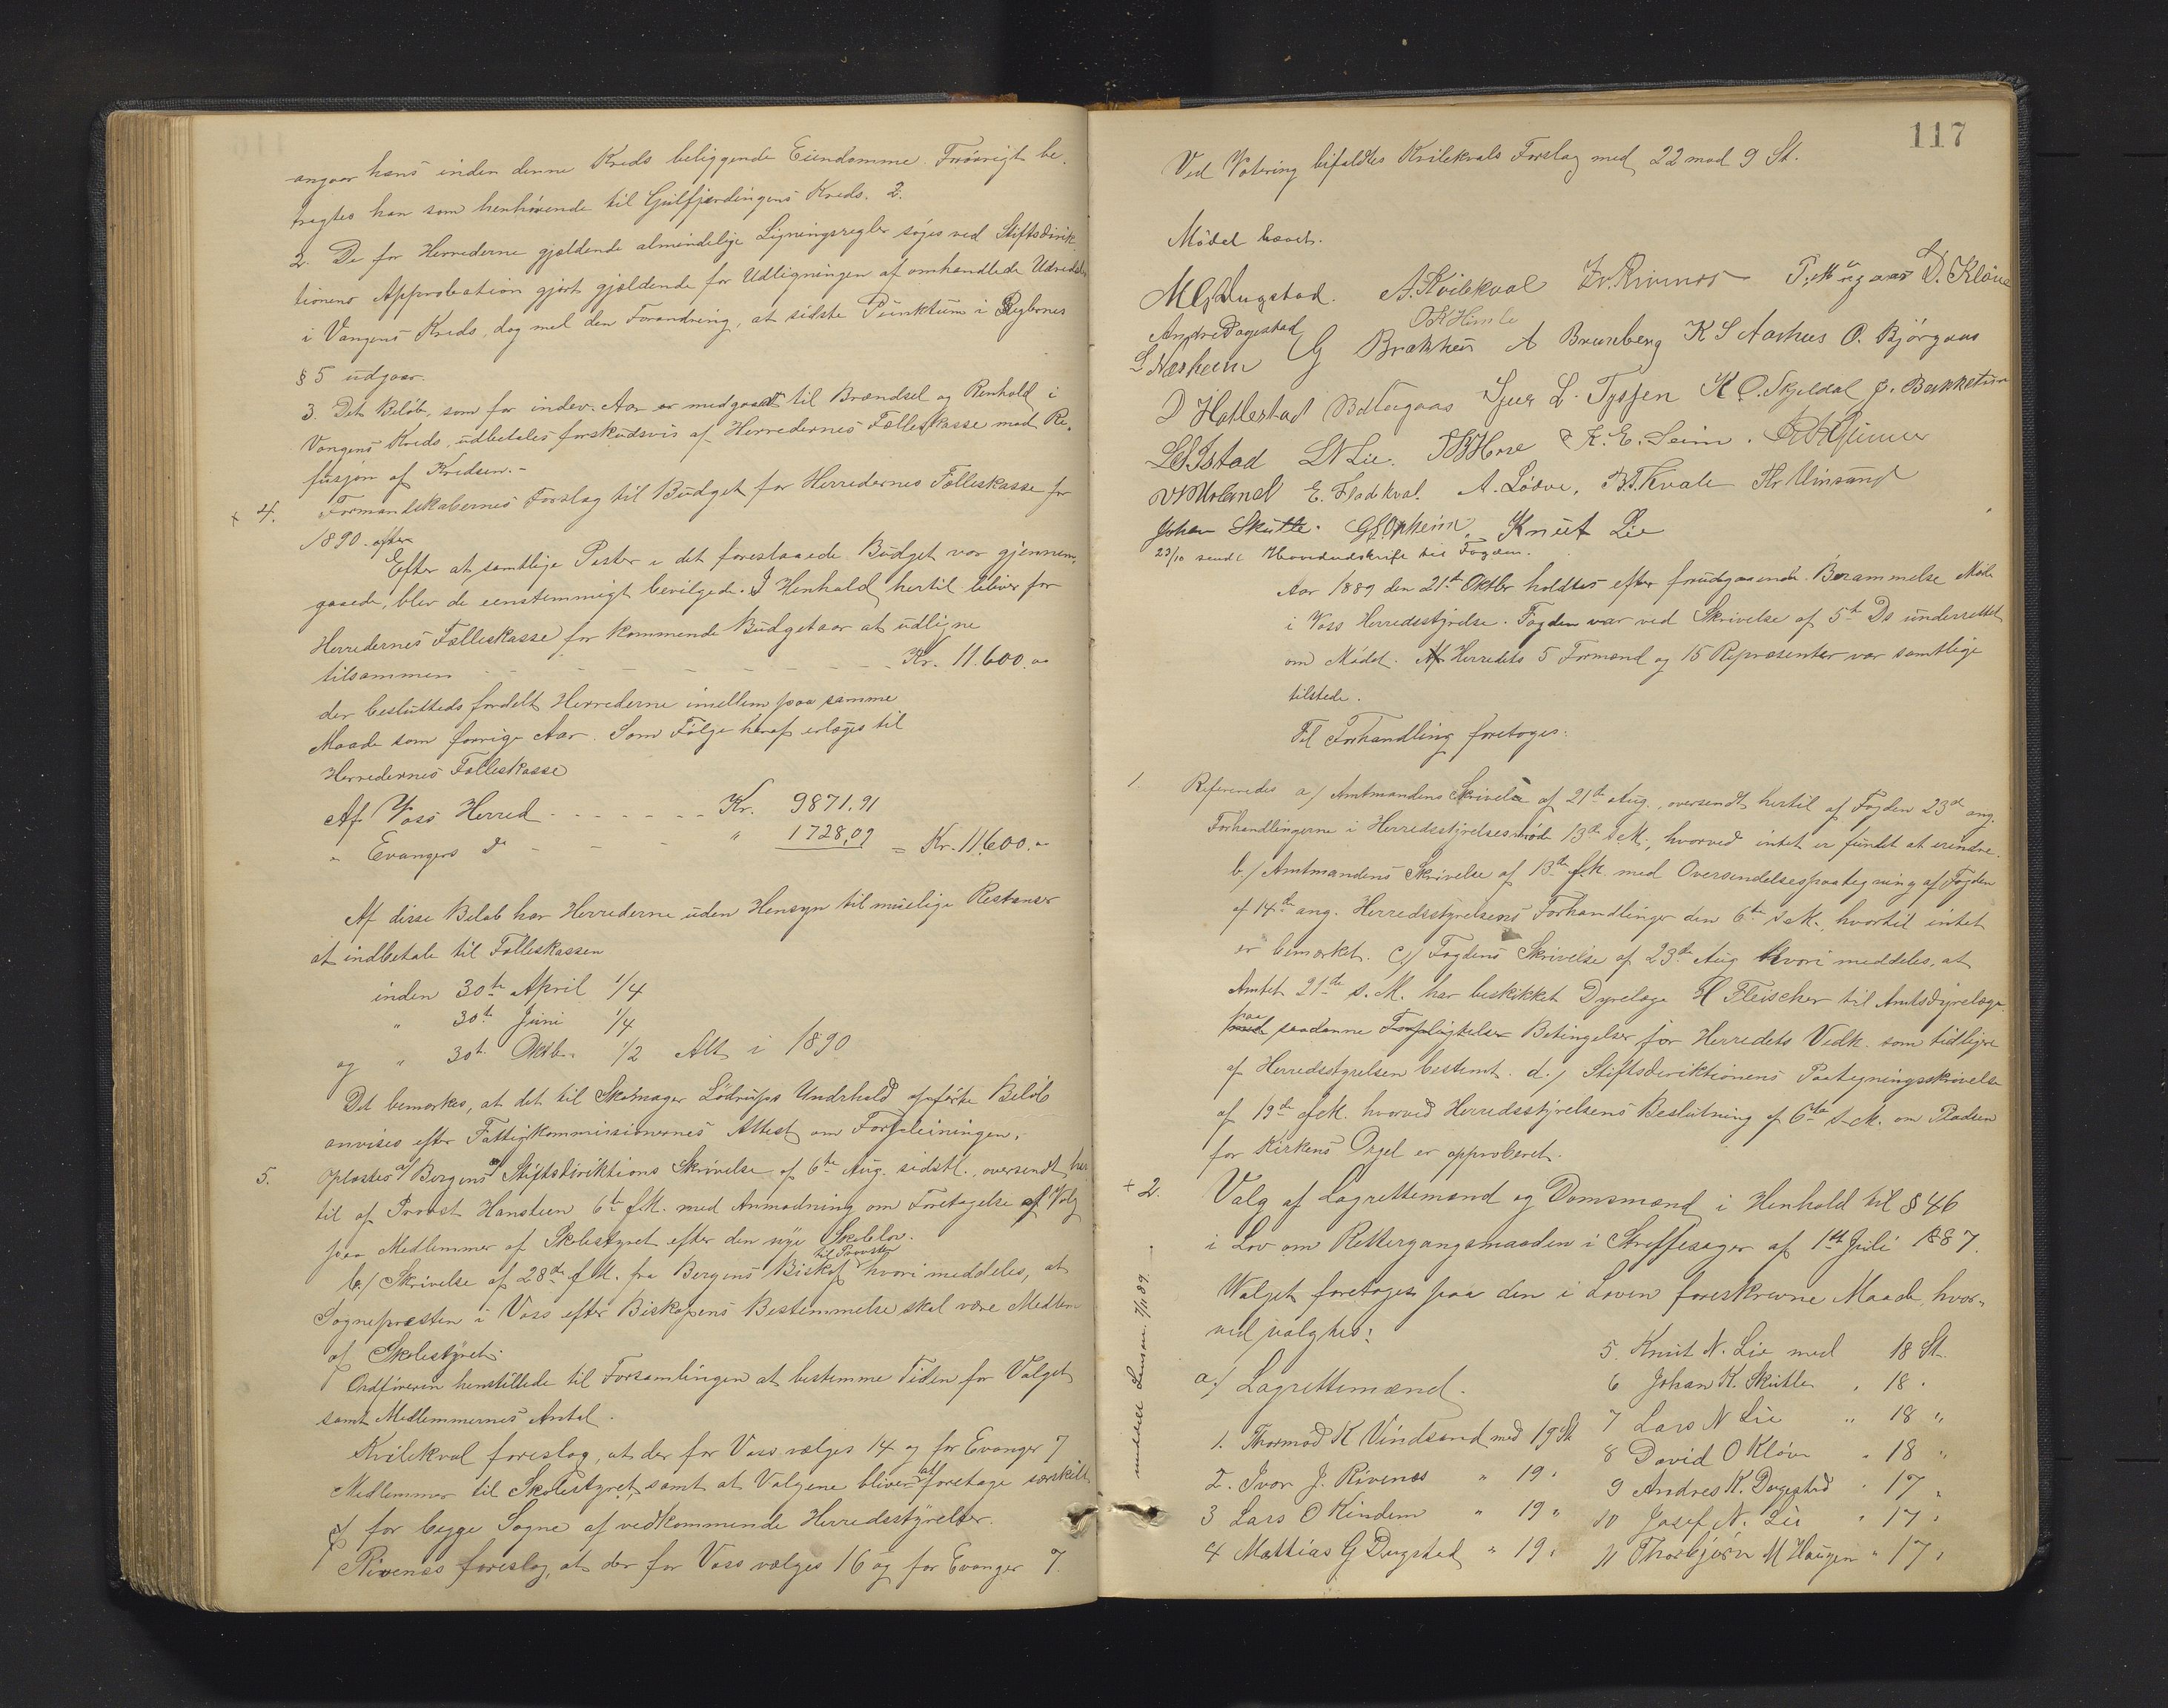 angaar hans inden denne Kreds beliggende Eiendomme. Forøvrigt be-
tragtes han som henhørende til Gulfjerdingens Kreds. 2.
2. De for Herrederne gjældende almindelige Ligningsregler søges ved Stiftsdirek-
tionens Approbation gjort gjældende for Udligningen af omhandlede Udredsler
i Vangens Kreds, dog med den Forandring, at sidste Punktum i Reglernes
§ 5 udgaar.
3. Det Beløb, som for indev. Aar er medgaaet til Brændsel og Renhold i
Vangens Kreds, udbetales forskudsvis af Herredernes Fælleskasse mod Re-
fusjon af Kredsen.-
+ 4. Formandskabernes Forslag til Budget for Herredernes Fælleskasse for
1890. efter
Efter at samtlige Poster i det foreslaaede Budget var gjennem-
gaaede, blev de eenstemmigt bevilgede. I Henhold hertil bliver for
Herredernes Fælleskasse for kommende Budgetaar at udligne
tilsammen - - - - - - - Kr. 11.600.00
der besluttedes fordelt Herrederne imellem paa samme
Maade som forrige Aar. Som Følge heraf erlægges til
Herredernes Fælleskasse
Af Voss Herred - - - - - - Kr. 9871,91
" Evangers Do - - - " 1728,09 = Kr. 11.600.00
Af disse Beløb har Herrederne uden Hensyn til mulige Restanser
at indbetale til Fælleskassen
inden 30te April 1/4
" 30te Juni 1/4
og " 30te Oktb. 1/2 Alt i 1890
Det bemærkes, at det til Skomager Lödrups Underhold opførte Beløb
anvises efter Fattigkommissionernes Attest om Forpleiningen.
5. Oplæstes a/ Bergens Stiftsdirektions Skrivelse af 6te Aug. sidstl., oversendt her-
til af Provst Hansteen 6te f. M. med Anmodning om Foretagelse af Valg
paa Medlemmer af Skolestyret efter den nye Skolelov.
b/ Skrivelse af 28de f. M. fra Bergens Biskop til Provsten hvori meddeles, at
Sognepræsten i Voss efter Biskopens Bestemmelse skal være Medlem
af Skolestyret.
Ordføreren henstillede til Forsamlingen at bestemme Tiden for Valget
samt Medlemmernes Antal.
Kvilekval foreslog, at der for Voss vælges 14 og for Evanger 7
Medlemmer til Skolestyret, samt at Valgene bliver at foretage særskilt
for begge Sogne af vedkommende Herredsstyrelser.
Rivenes foreslog, at der for Voss vælges 16 og for Evanger 7.
117
Ved Votering bifaldtes Kvilekvals Forslag med 22 mod 9 St.
Mødet hævet.
M G Dugstad. A. Kvilekval Iv. Rivenes D. Kløve
Andres Dagestad O K Himle
L Næsheim G Brækhus A Brunborg K S Aarhus O. Bjørgaas
D Hallestad Sjur L. Tyssen K O. Skjeldal J. Bakketun
L N Lie. K. E. Seim.
E. Fladkval. A. Lödve. B. T. Kvale Th. Vinsand
Johan Skutle. G L Opheim. Knut Lie
23/10 sendt Hovedudskrift til Fogden.
Aar 1889 den 21de Oktbr holdtes efter forudgaaende Berammelse Møde
i Voss Herredsstyrelse. Fogden var ved Skrivelse af 5te Ds underrettet
om Mødet. Af Herredets 5 Formænd og 15 Repræsenter var samtlige
tilstede.
Til Forhandling foretoges:
1. Refereredes a/ Amtmandens Skrivelse af 21de Aug., oversendt hertil af Fogden 23de ang.
Forhandlingerne i Herredsstyrelsesmøde 13de s. M., hvorved intet er fundet at erindre.
b./ Amtmandens Skrivelse af 13de f. M. med Oversendelsespaategning af Fogden
af 14de ang. Herredsstyrelsens Forhandlinger den 6te s. M., hvortil intet
er bemærket. c./ Fogdens Skrivelse af 23de Aug. hvori meddeles, at
Amtet 21de s. M. har beskikket Dyrelæge H Fleischer til Amtsdyrelæge
paa saadanne Forpligtelser Betingelser for Herredets Vedk. som tidligere
af Herredsstyrelsen bestemt. d./ Stiftsdirektionens Paategningsskrivelse
af 19de f. M. hvorved Herredsstyrelsens Beslutning af 6te s. M. om Pladsen
for Kirkens Orgel er approberet.
+ 2. Valg af Lagrettemænd og Domsmænd i Henhold til § 46
i Lov om Rettergangsmaaden i Straffesager af 1ste Juli 1887.
Valget foretoges paa den i Loven foreskrevne Maade, hvor-
ved valgtes:
meddelt Lensm. 7/11 89.
a./ Lagrettemænd.
1. Thormod K Vindsand med 19 St
2. Ivar J. Rivenes " 19 "
3 Lars O Kindem " 19 "
4 Mattias G Dugstad " 19 "
5. Knut N. Lie med 18 St.
6 Johan K. Skutle " 18 "
7 Lars N Lie " 18 "
8 David O Kløve " 18 "
9 Andres K. Dagestad " 17 "
10 Josef N. Lie " 17 "
11 Thorbjørn M Haugen " 17 "